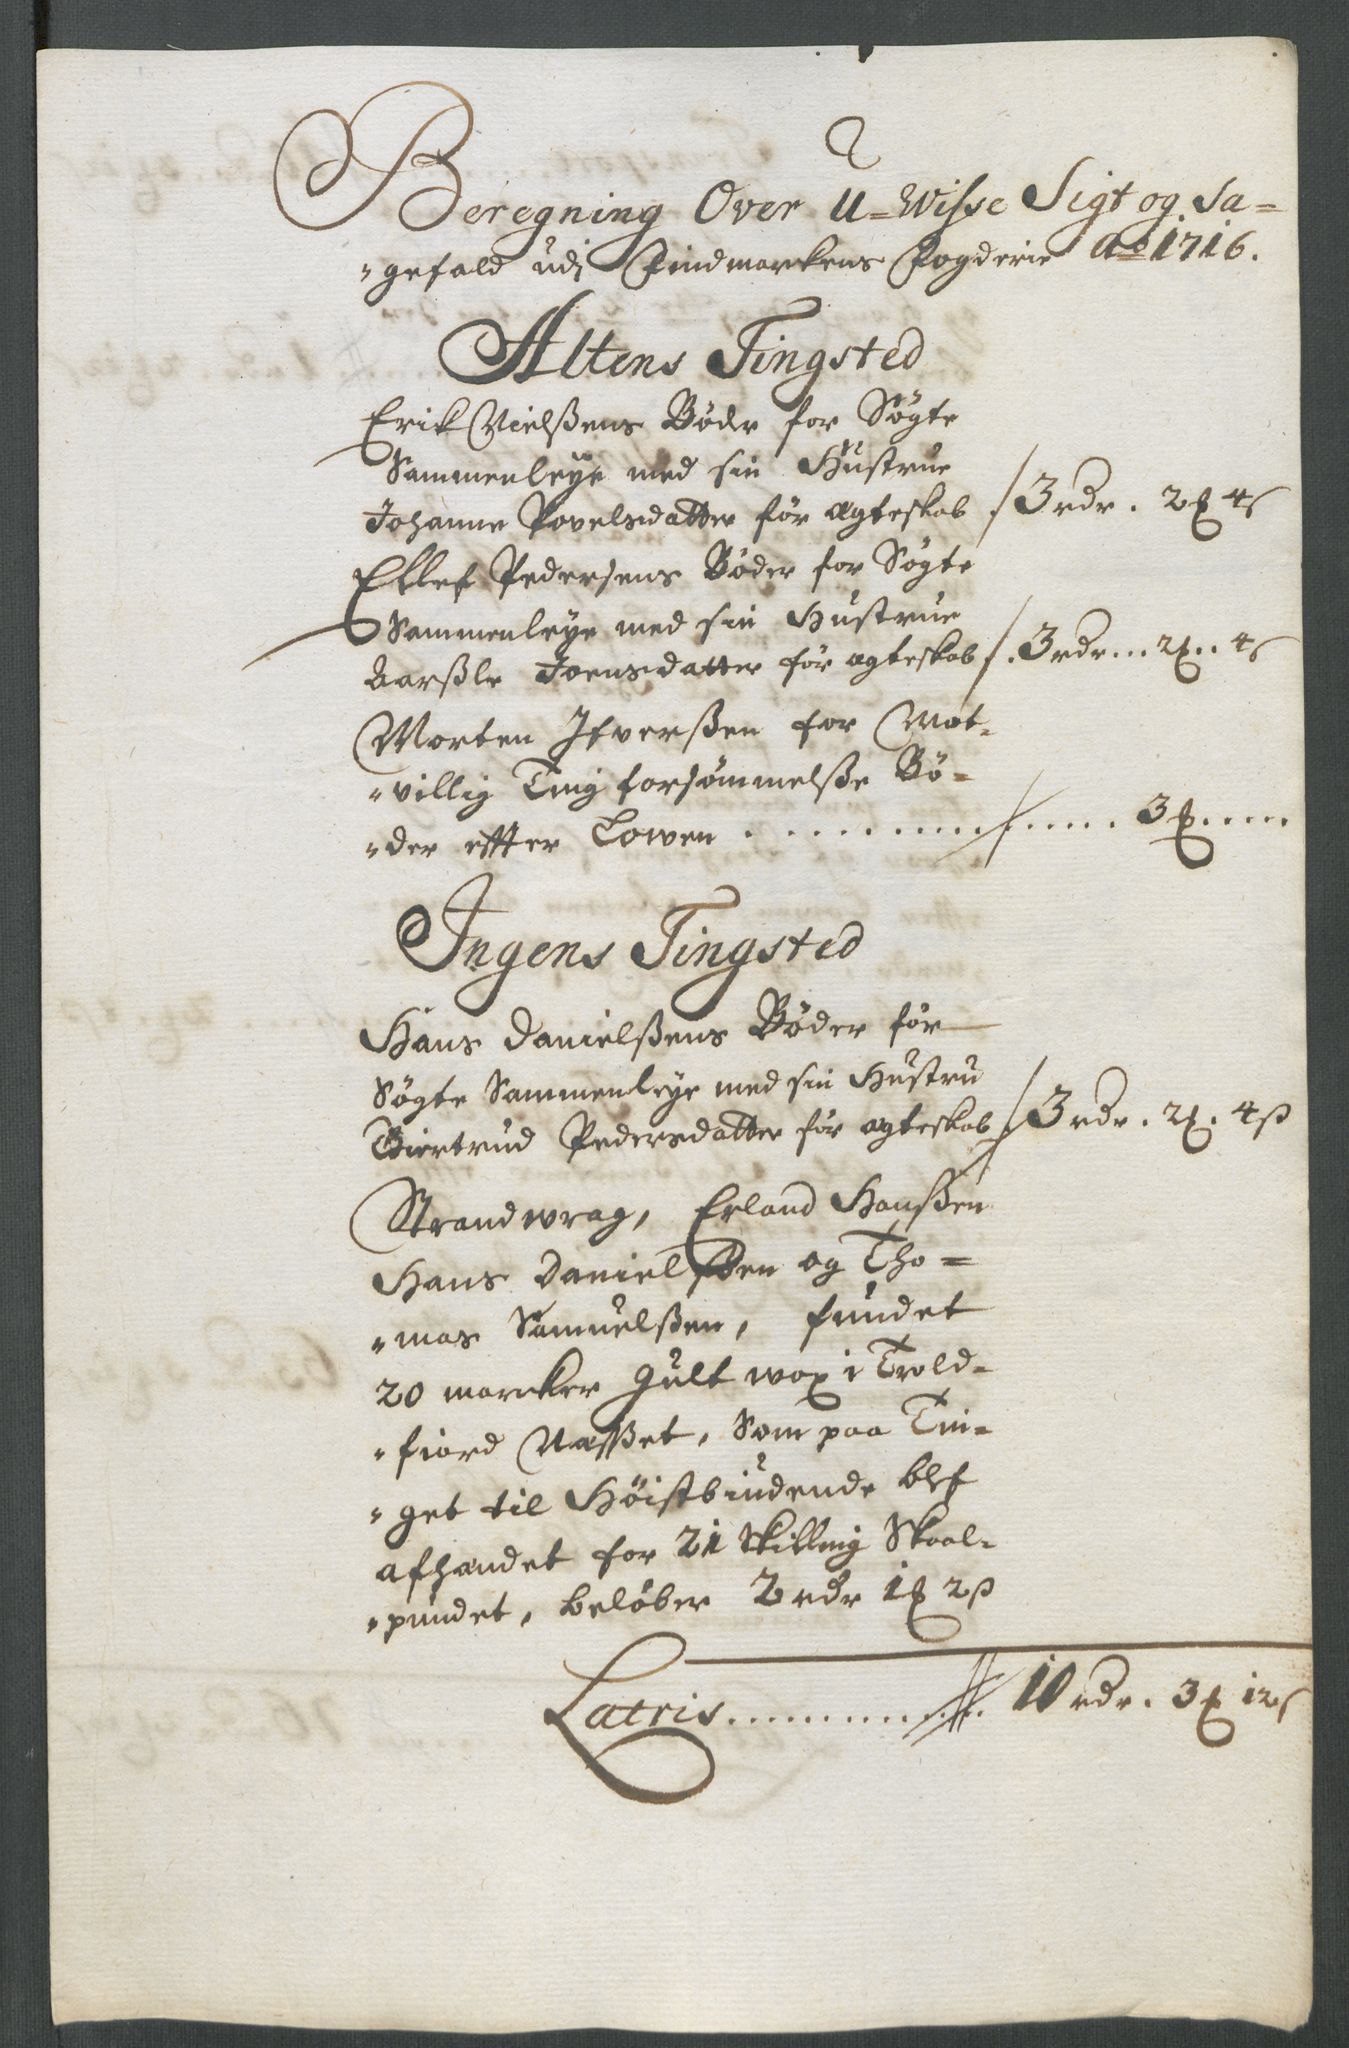 Beregning Over U-Wisse Sigt og Sa-
"gefald udj Findmarckens Fogderie Ao 1716.
Altens Tingsted
Erik Nielßens Bøde for Søgte
Sammenleye med sin Hustrue
Johanne Povelsdatter før ægteskab / 3 rdr. 2 ₰ 4 s
Ellef Pedersens Bøder for Søgte
Sammenleye med sin Hustrue
Joensdatter før ægteskab / . 3 rdr... 2 ₰.. 4 s
Morten Ifverßen for Mot-
"villig Ting forsømmelße Bø-
"der effter Lowen . . . . . . . . . . . . 3 ₰.....
Ingens Tingsted
Hans Danielßens Bøder før
Søgte Sammenleye med sin Hustru
Giertrud Pedersdatter før ægteskab / 3 rdr. 2 ₰. 4 ß
Strandwrag, Erland Hanßen
Hans Danielßen og Tho-
"mas Samuelßen, fundet
20 marcker gult wox i Trold-
"fiord Næsset, Som paa Tin-
"get til Höistbiudende blef
afhandet for 21 Skilling Skaal-
"pundet, beløber 2 rdr 1 ₰ 2 ß
Latris............ 10 rdr. 3 ₰ 12 s